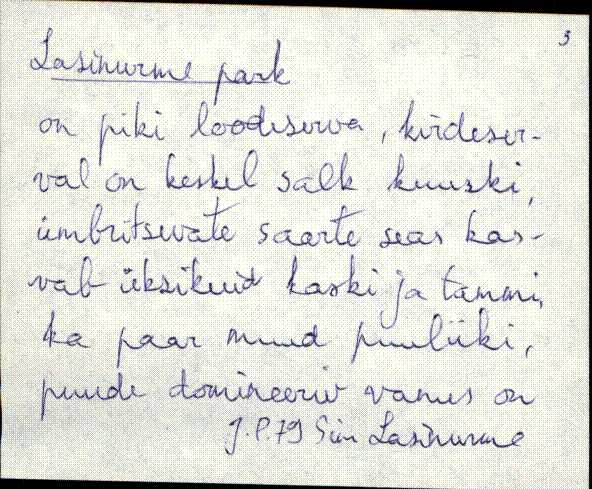 3
Lasinurme park
on piki loodeserva, kirdeser-
val on keskel salk kuuski,
ümbritsevate saarte seas kas-
vab üksikuid kaski ja tammi,
ka paar muud puuliiki,
puude domineeriv vanus on
J.P.79 Sim Lasinurme